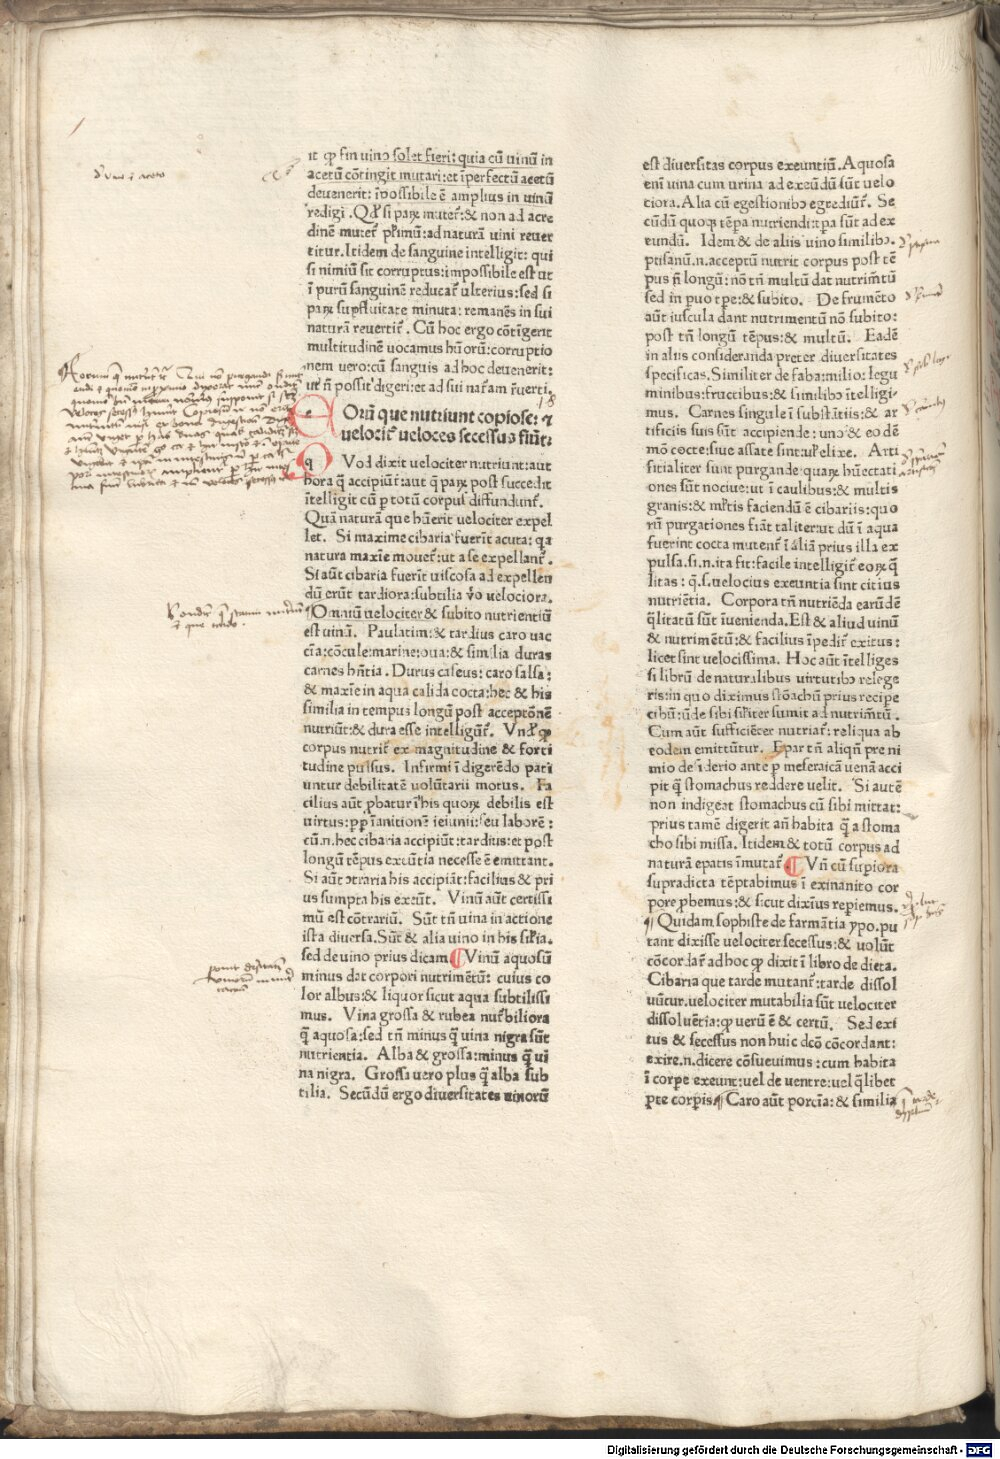 it ꝙ fin uino solet fieri: quia cū uinū in
acetū cōtingit mutari: et īperfectū acetū
deuenerit: īpossibile ē amplius in uinū
redigi. Qd' si paꝝ mutet᷑: & non ad acre
dinē mutet᷑ pͥsimū: ad naturā uini reuer
titur. Itidem de sanguine intelligit: qui
si nimiū sit corruptus: impossibile est ut
ī purū sanguinē reducat᷑ ulterius: sed si
paꝝ suꝑfluitate minuta: remanēs in sui
naturā reuertit᷑. Cū hoc ergo cōtīgerit
multitudinē uocamus hūorū: corruptio
nem uero: cū sanguis ad hoc deuenerit:
ut n̄ possit digeri: et ad sui nat᷑am r̄uerti.
18
eOrū que nutriunt copiose: ⁊
uelocit᷑ ueloces secessus fiūt:
qVod dixit uelociter nutriunt: aut
hora q̄ accipiūt: aut q̄ paꝝ post succedit
ītelligit cū ꝑ totū corpus diffundunt᷑.
Quā naturā que hūerit uelociter expel
let. Si maxime cibaria fuerīt acuta: qa
natura maxīe mouet᷑: ut a se expellant᷑.
Si aūt cibaria fuerīt uiscosa ad expellen
dū erūt tardiora: subtilia v̄o uelociora.
Omniū uelociter & subito nutrientiū
est uinū. Paulatim: & tardius caro uac
cīa: cōcule: marine: oua: & similia duras
carnes hn̄tia. Durus caseus: caro salsa:
& maxīe in aqua calida cocta: hec & his
similia in tempus longū post acceptōnē
nutriūt: & dura esse intelligūt᷑. Vnd' ꝙ
corpus nutrit᷑ ex magnitudine & forti
tudine pulsus. Infirmi ī digerēdo pati
untur debilitatē volūtarii motus. Fa
cilius aūt ꝓbatur ī his quoꝝ debilis est
uirtus: ꝓꝑ īanitionē ieiunii: seu laborē:
cū.n. hec cibaria accipiūt: tardius: et post
longū tēpus exeūtia necesse ē emittant.
Si aūt ↄtraria his accipiāt: facilius & pri
us sumpta his exeūt. Vinū aūt certissi
mū est cōtrariū. Sūt tn̄ uina in actione
ista diuersa. Sūt & alia uino in his sil'ia.
sed de uino prius dicam. Vinū aquosū
minus dat corpori nutrimētū: cuius co
lor albus: & liquor sicut aqua subtilissi
mus. Vina grossa & rubea nut᷑biliora
q̄ aquosa: sed tn̄ minus q̄ uina nigra sūt
nutrientia. Alba & grossa: minus q̄ ui
na nigra. Grossa uero plus q̄ alba sub
tilia. Secūdū ergo diuersitates uinorū
est diuersitas corpus exeuntiū. Aquosa
eni uina cum urina ad exeūdū sūt uelo
ciora. Alia cū egestionibꝰ egrediūt᷑. Se
cūdū quoqꝫ tēpa nutriendi: tꝑa sūt ad ex
eundū. Idem & de aliis uino similibꝰ.
ptisanū.n. acceptū nutrit corpus post tē
pus n̄ longū: nō tn̄ multū dat nutrim̄tū
sed in ꝑuo tꝑe: & subito. De frumēto
aūt iuscula dant nutrimentū nō subito:
post tn̄ longū tēpus: & multū. Eadē
in aliis consideranda preter diuersitates
specificas. Similiter de faba: milio: legu
minibus: fructibus: & similibꝰ ītelligi
mus. Carnes singule ī substātiis: & ar
tificiis suis sūt accipiende: uno & eo dē
mō cocte: siue assate sint: ul' elixe. Arti
ficialiter sunt purgande: quaꝝ hūectati
ones sūt nociue: ut ī caulibus: & multis
granis: & ml'tis faciendū ē cibariis: quo
rū purgationes fiāt taliter: ut dū ī aqua
fuerint cocta mutent᷑ ī āliā prius illa ex
pulsa. si.n. ita fit: facile intelligit᷑ eoꝝ q̄
litas: q.s. uelocius exeuntia sint citius
nutriētia. Corpora tn̄ nutriēda earū dē
q̄litatū sūt īuenienda. Est & aliud uinū
& nutrimētū: & facilius īpedit᷑ exitus:
licet sint uelocissima. Hoc aūt ītelliges
si librū de naturalibus uirtutibꝰ relege
ris: in quo diximus stōachū prius recipe
cibū: ūde sibi sil'iter sumit ad nutrim̄tū.
Cum aūt sufficiēter nutriat᷑: reliqua ab
eodem emittūtur. Epar tn̄ aliqn̄ pre ni
mio desiderio ante ꝑ meseraicā uenā acci
pit q̄ stomachus reddere uelit. Si autē
non indigeat stomachus cū sibi mittat:
prius tamē digerit añ habita q̄ a stoma
cho sibi missa. Itidem & totū corpus ad
naturā epatis īmutat᷑. Vn̄ cū supiora
supradicta tēptabimus ī exinanito cor
pore ꝓbemus: & sicut diximus reꝑiemus.
Quidam sophiste de farmātia ypo. pu
tant dixisse uelociter secessus: & uolūt
cōcordar᷑ ad hoc ꝙ dixit ī libro de dieta.
Cibaria que tarde mutant᷑: tarde dissol
uūtur. uelociter mutabilia sūt uelociter
dissoluētia: ꝙ uerū ē & certū. Sed exi
tus & secessus non huic dcō cōcordant:
exire.n. dicere cōsueuimus: cum habita
ī corpe exeunt: uel de uentre: uel q̄libet
ꝑte corpis. Caro aūt porcīa: & similia
Digitalisierung gefördert durch die Deutsche Forschungsgemeinschaft - DFG